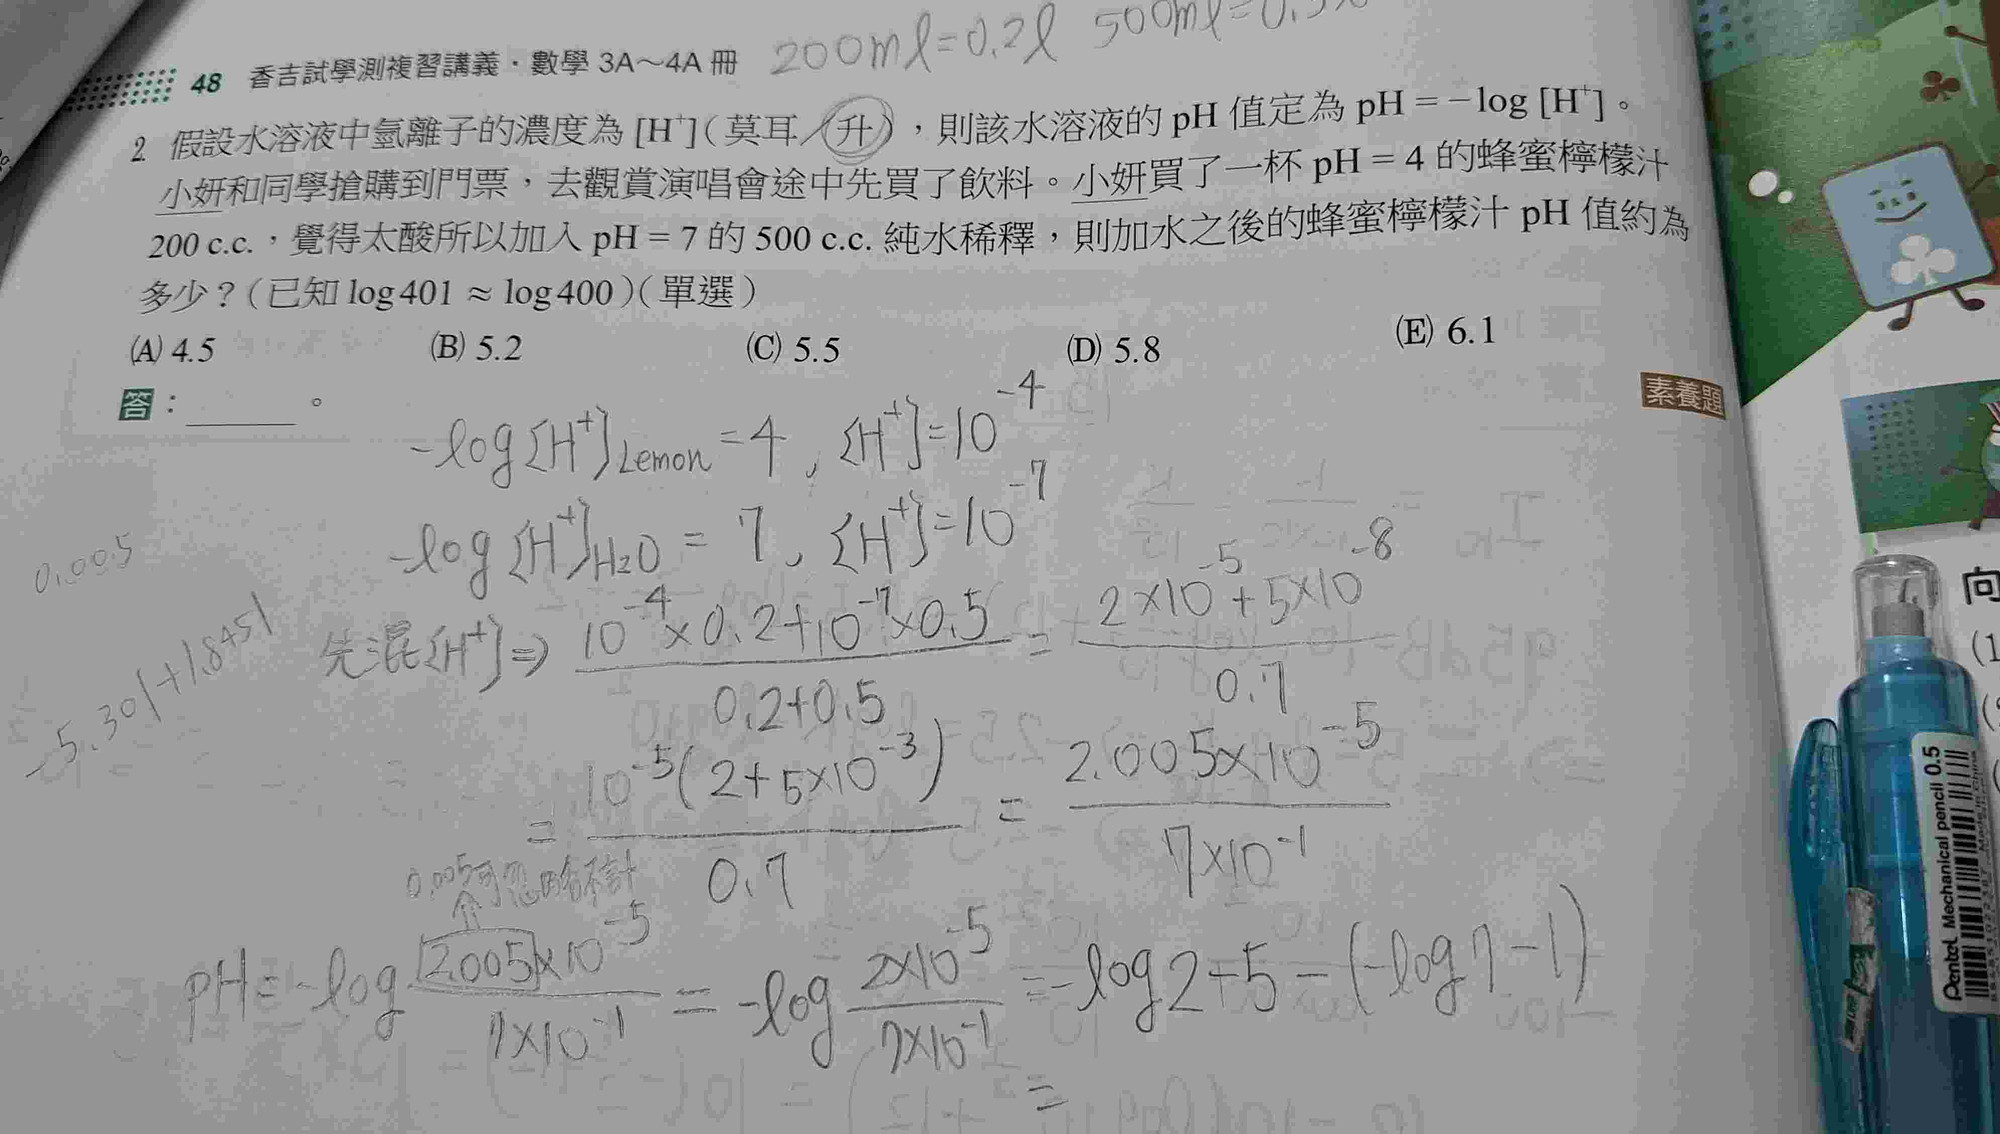 200ml=0.2l 500ml=0.5
48 香吉試學測複習講義・數學 3A～4A 冊
2. 假設水溶液中氫離子的濃度為 [H⁺]（莫耳／升），則該水溶液的 pH 值定為 pH = −log [H⁺]。
小妍和同學搶購到門票，去觀賞演唱會途中先買了飲料。小妍買了一杯 pH = 4 的蜂蜜檸檬汁
200 c.c.，覺得太酸所以加入 pH = 7 的 500 c.c. 純水稀釋，則加水之後的蜂蜜檸檬汁 pH 值約為
多少？（已知 log 401 ≈ log 400）（單選）
(A) 4.5 (B) 5.2 (C) 5.5 (D) 5.8 (E) 6.1
答：______。
素養題
-log[H⁺]Lemon = 4, [H⁺]=10⁻⁴
-log[H⁺]H₂O = 7, [H⁺]=10⁻⁷
0.005
-5.301+1.8451
先混[H⁺]⇒ (10⁻⁴×0.2+10⁻⁷×0.5)/(0.2+0.5) = (2×10⁻⁵+5×10⁻⁸)/0.7
= 10⁻⁵(2+5×10⁻³)/0.7 = 2.005×10⁻⁵/(7×10⁻¹)
0.005可忽略不計
PH=-log (2.005×10⁻⁵)/(7×10⁻¹) = -log (2×10⁻⁵)/(7×10⁻¹) = -log2+5-(-log7-1)
=
向
Pentel Mechanical pencil 0.5